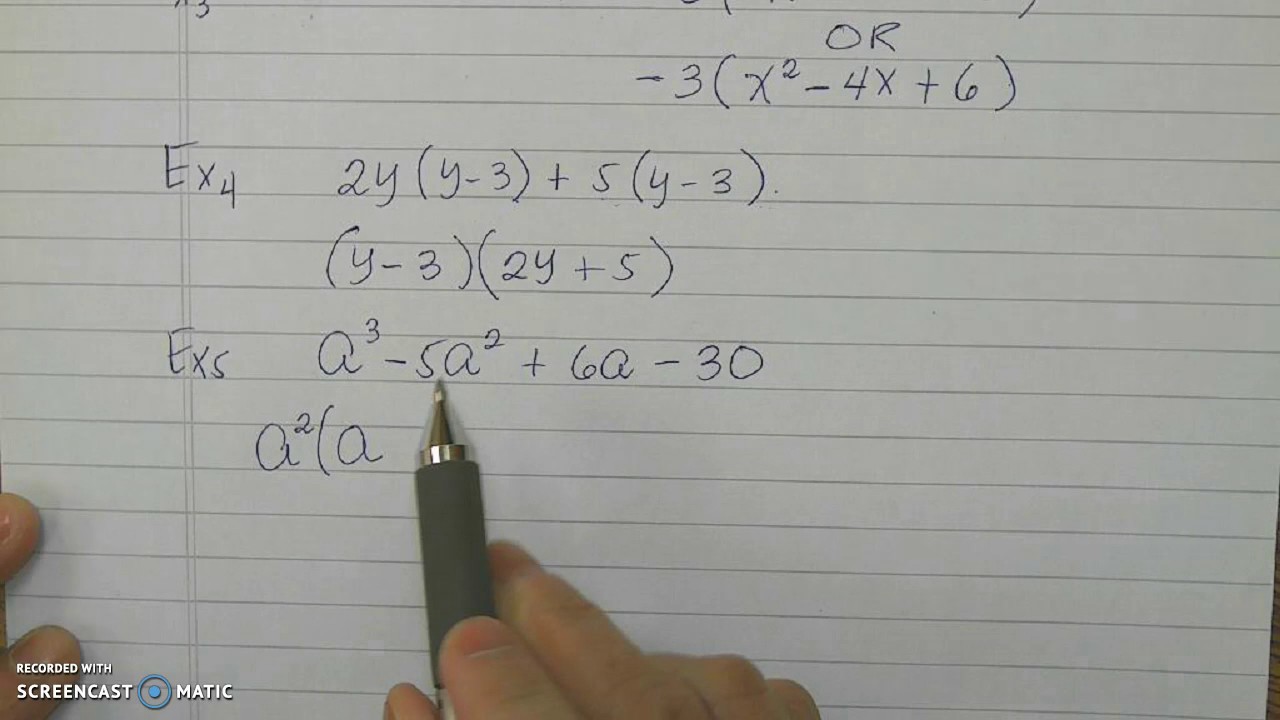 OR
-3(x² - 4x + 6)
Ex4 2y(y-3) + 5(y-3).
(y-3)(2y+5)
Ex5 a³ - 5a² + 6a - 30
a²(a
RECORDED WITH
SCREENCAST MATIC